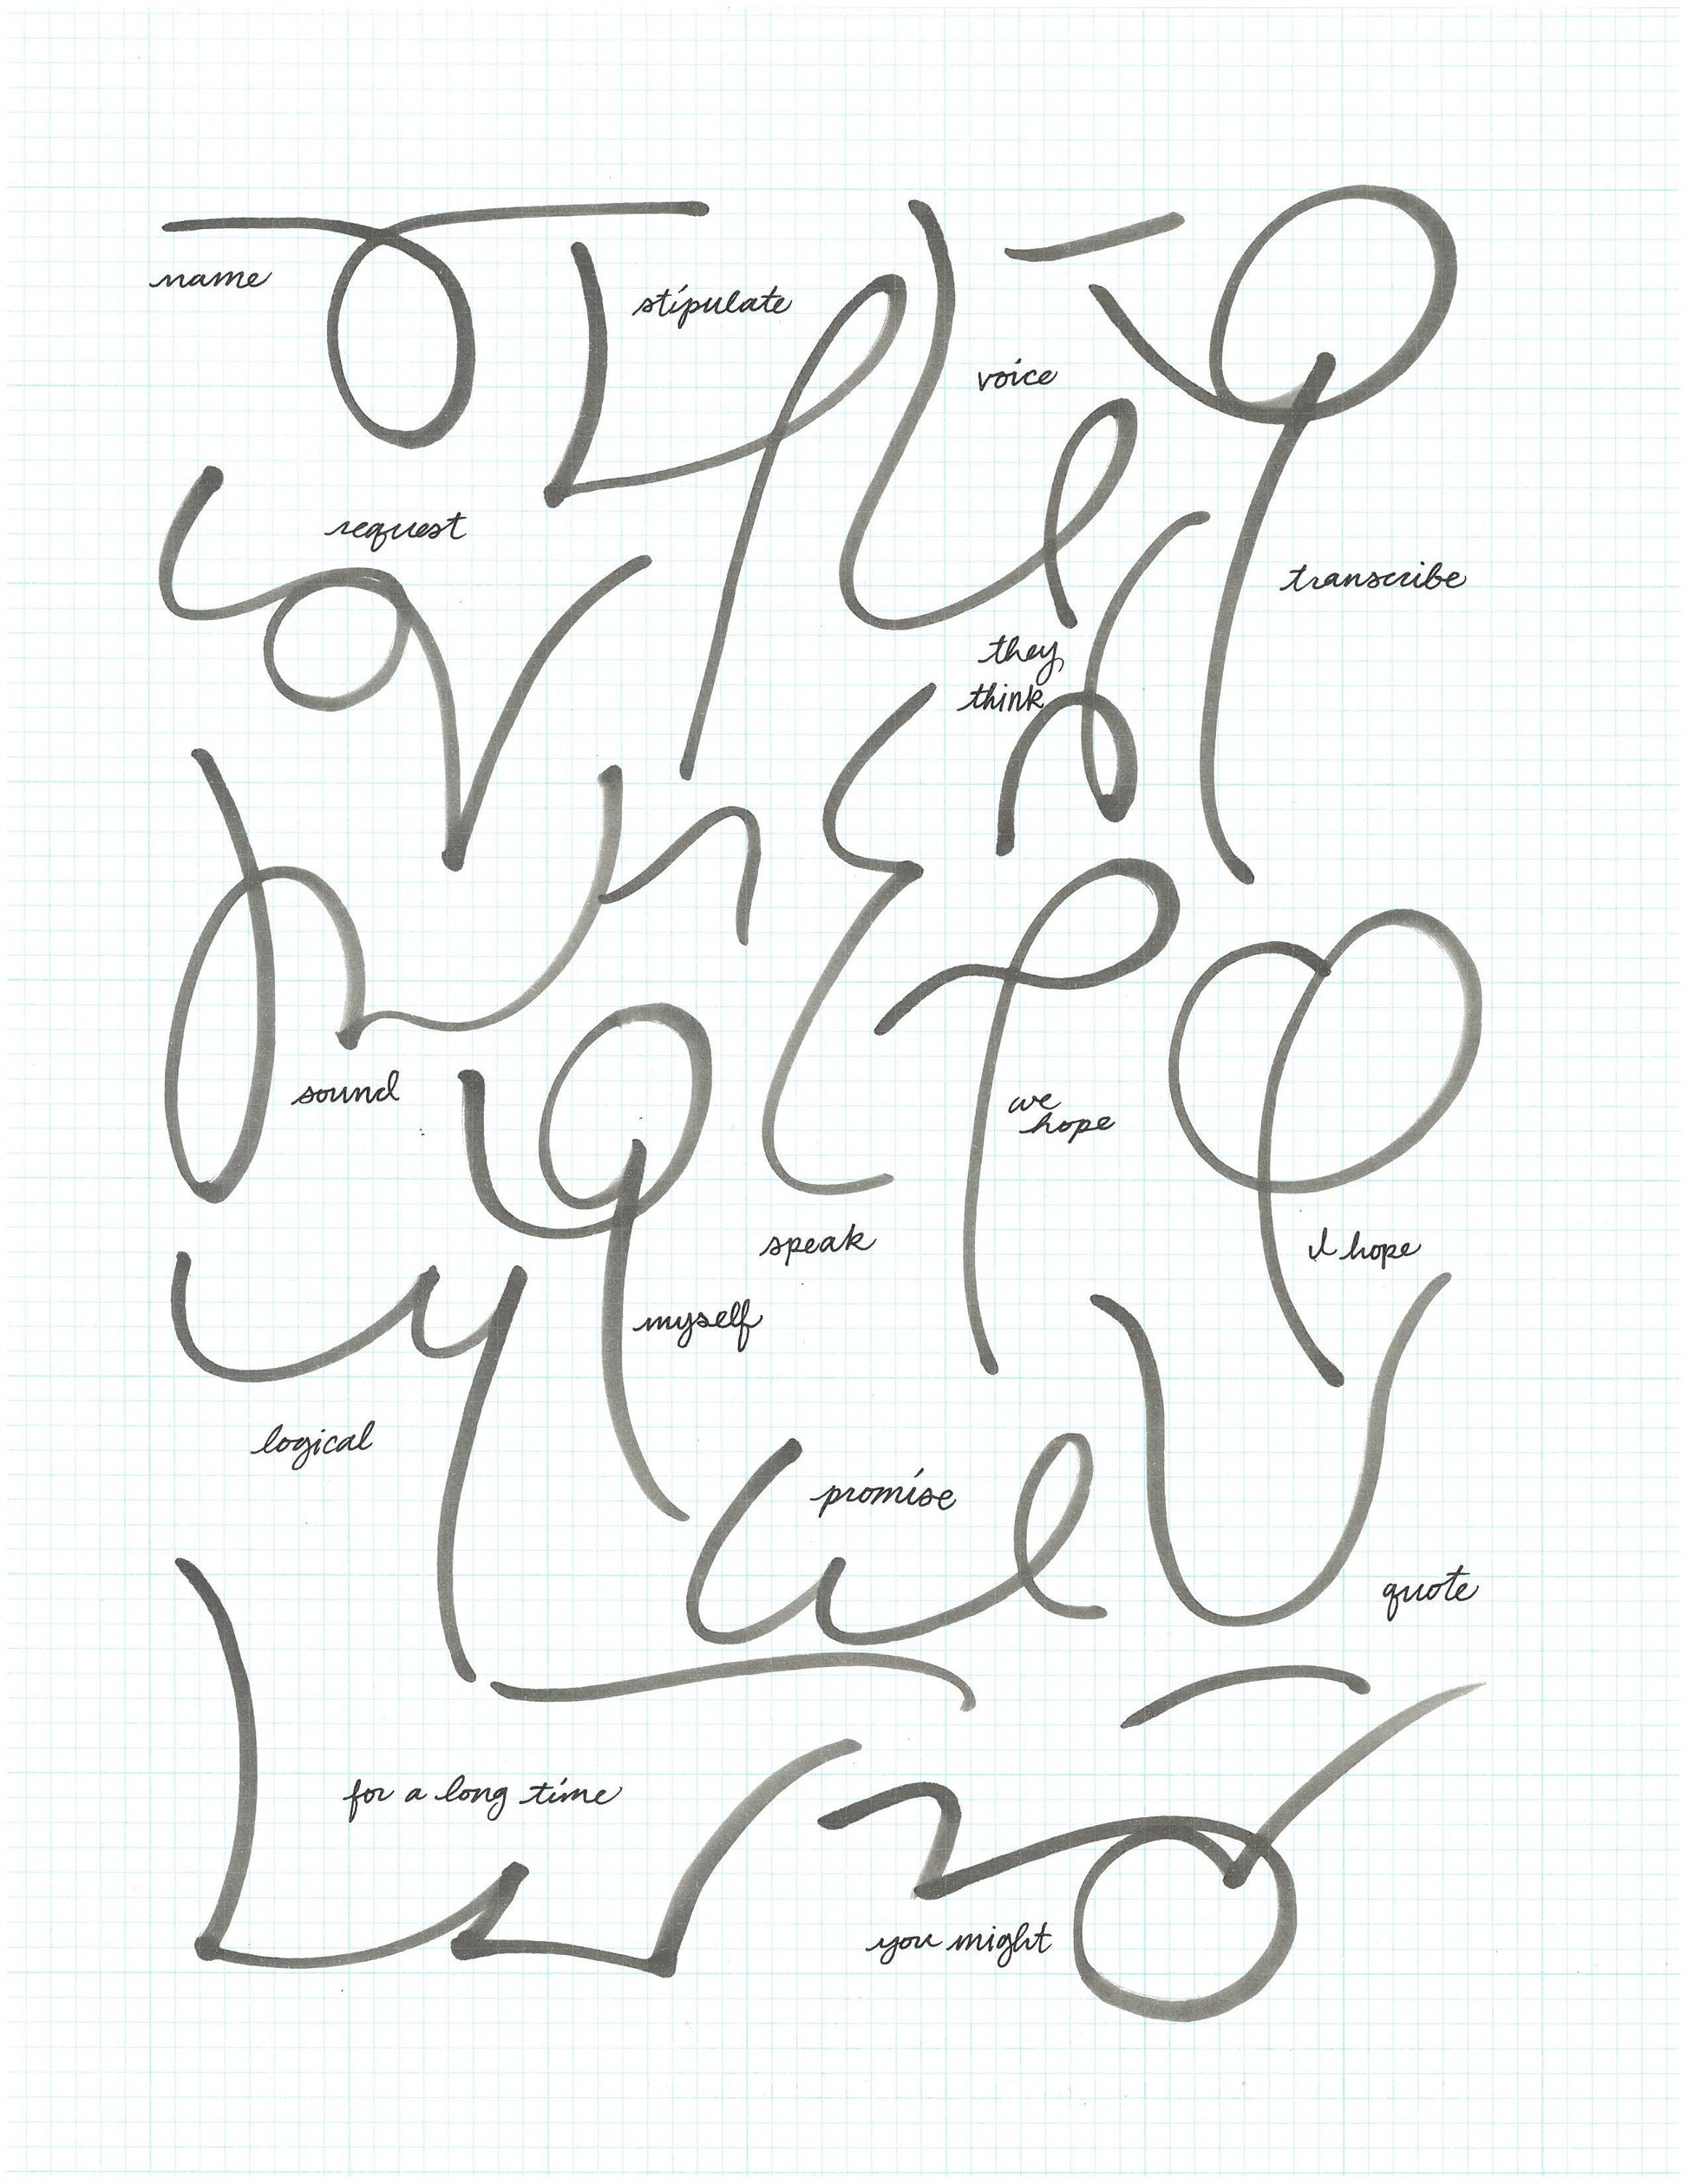 name
stipulate
voice
request
transcribe
they
think
sound
we
hope
speak
I hope
myself
logical
promise
quote
for a long time
you might